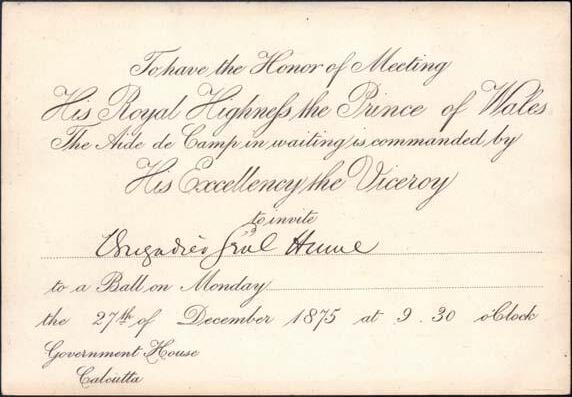 To have the Honor of Meeting
His Royal Highneſs, the Prince of Wales
The Aide de Camp in waiting is commanded by
His Excellency the Viceroy
to invite
Brigadier Genl Hume
to a Ball on Monday
the 27th of December 1875 at 9.30 o'Clock
Government House
Calcutta